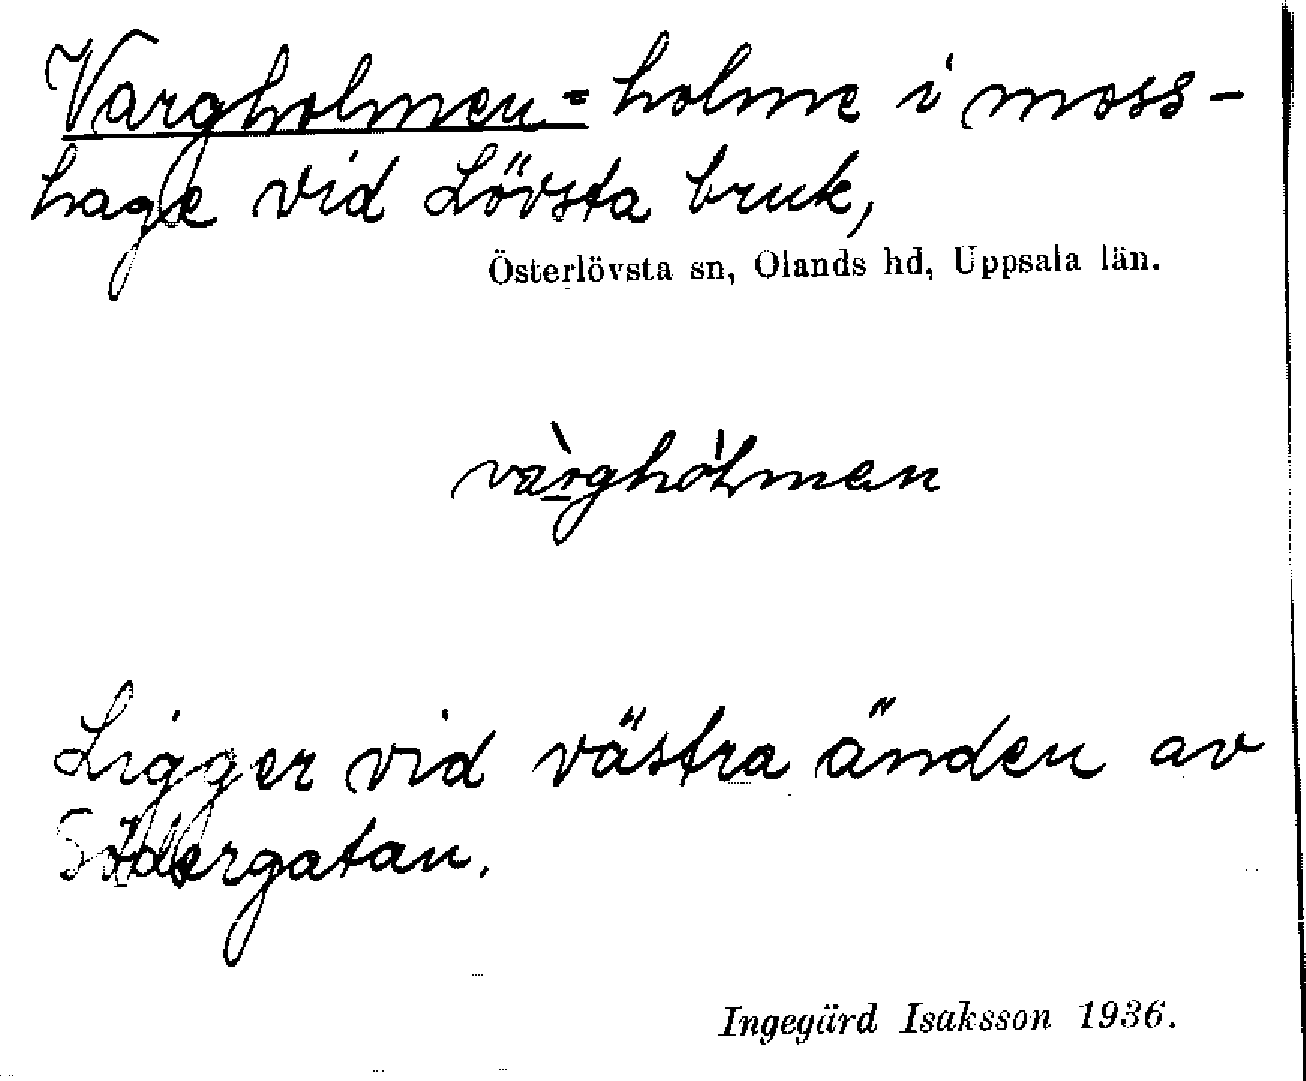 Vargholmen = holme i moss-
hage vid Lövsta bruk,
Österlövsta sn, Olands hd, Uppsala län.
vàrghólmen
Ligger vid västra änden av
Södergatan.
Ingegärd Isaksson 1936.